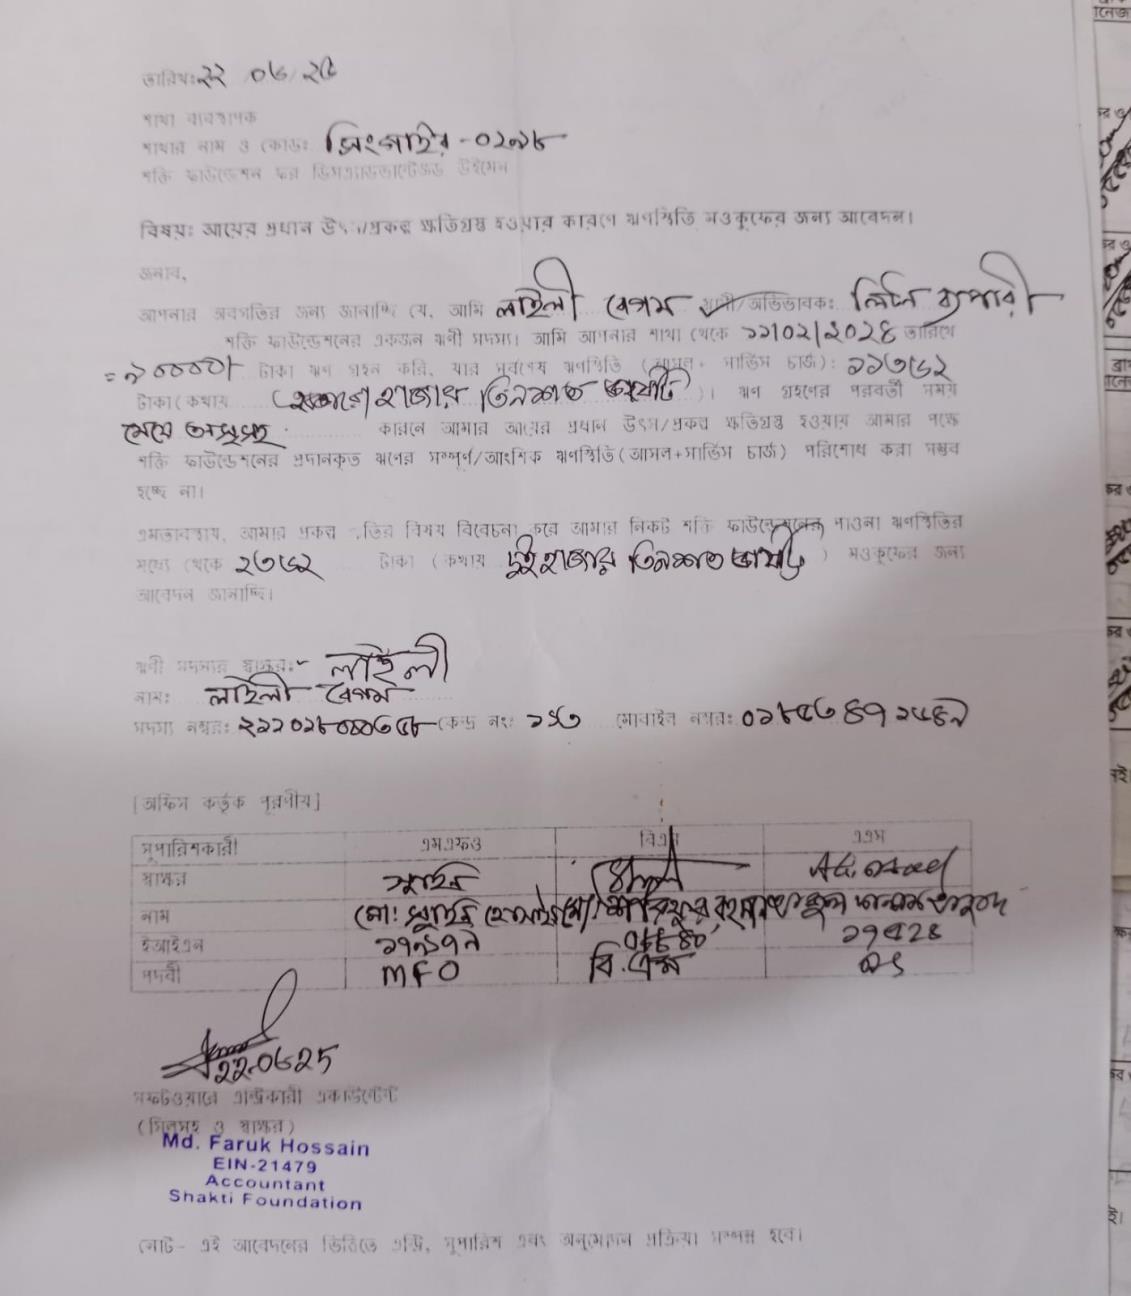 তারিখঃ ২২/০৬/২৫
শাখা ব্যবস্থাপক
শাখার নাম ও কোডঃ সিংগাইর-০২৯৮
শক্তি ফাউন্ডেশন ফর ডিসএ্যাডভান্টেজড উইমেন
বিষয়ঃ আয়ের প্রধান উৎস/প্রকল্প ক্ষতিগ্রস্ত হওয়ার কারণে ঋণস্থিতি মওকুফের জন্য আবেদন।
জনাব,
আপনার অবগতির জন্য জানাচ্ছি যে, আমি লাইলী বেগম স্বামী/অভিভাবক: লিটন ব্যপারী
শক্তি ফাউন্ডেশনের একজন ঋণী সদস্য। আমি আপনার শাখা থেকে ১১/০২/২০২৪ তারিখে
= ৯০০০০/- টাকা ঋণ গ্রহন করি, যার সর্বশেষ ঋণস্থিতি (আসল+ সার্ভিস চার্জ): ১১৩৬২
টাকা (কথায় হাজার তিনশত বাষট্টি)। ঋণ গ্রহণের পরবর্তী সময়ে
মেয়ে অসুস্থ কারনে আমার আয়ের প্রধান উৎস/প্রকল্প ক্ষতিগ্রস্ত হওয়ায় আমার পক্ষে
শক্তি ফাউন্ডেশনের প্রদানকৃত ঋণের সম্পূর্ণ/আংশিক ঋণস্থিতি (আসল+সার্ভিস চার্জ) পরিশোধ করা সম্ভব
হচ্ছে না।
এমতাবস্থায়, আমার প্রকল্প ক্ষতির বিষয় বিবেচনা করে আমার নিকট শক্তি ফাউন্ডেশনের পাওনা ঋণস্থিতির
মধ্যে থেকে ২৩৬২ টাকা (কথায় দুই হাজার তিনশত বাষট্টি) মওকুফের জন্য
আবেদন জানাচ্ছি।
ঋণী সদস্যর স্বাক্ষর:- লাইলী
নাম: লাইলী বেগম
সদস্য নম্বর: কেন্দ্র নং: মোবাইল নম্বর:
[অফিস কর্তৃক পূরণীয়]
সুপারিশকারী এমএফও বিএম এএম
স্বাক্ষর
নাম মো:
ইআইএন ১৭৯১৭৭ ০৮৮৪০ ১৭৫২৪
পদবী MFO বি.এম
22.06.25
সফটওয়ারে এন্ট্রিকারী একাউন্টেন্ট
(সিলসহ ও স্বাক্ষর)
Md. Faruk Hossain
EIN-21479
Accountant
Shakti Foundation
নোট- এই আবেদনের ভিত্তিতে এন্ট্রি, সুপারিশ এবং অনুমোদন প্রক্রিয়া সম্পন্ন হবে।